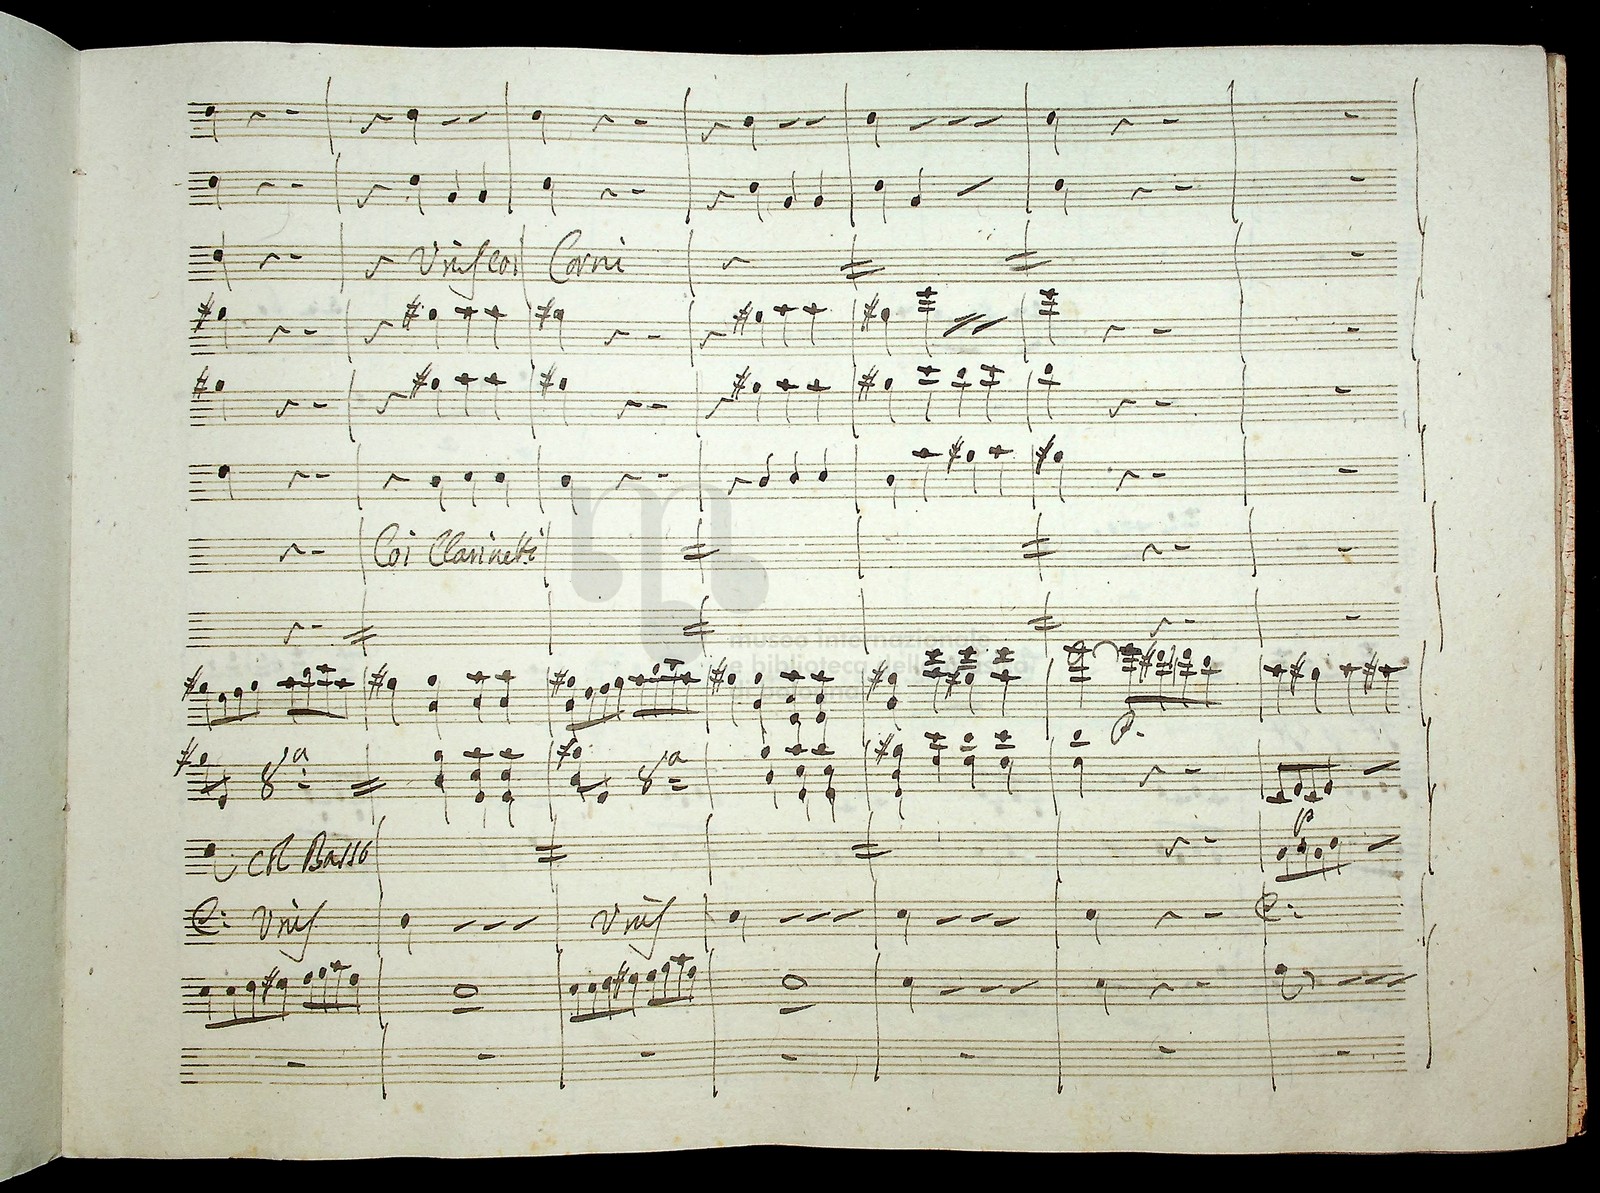 Unis coi Corni
Coi Clarinetti
museo internazionale
e biblioteca della musica
di bologna
P.
8a 8a
Col Basso
P
Unis Unis